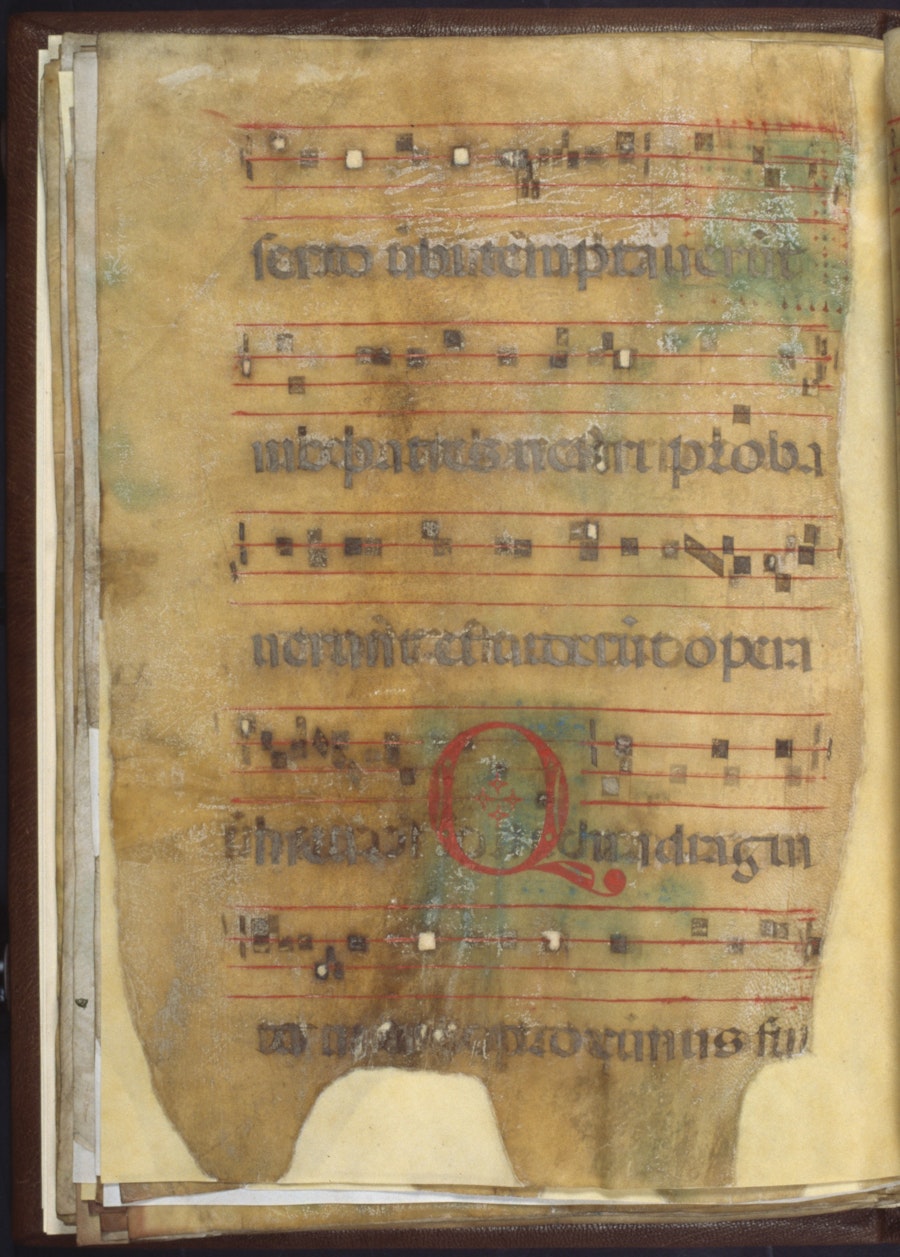 serto ubi temptaverūt
me patres vestri proba
verunt et viderūt opera
mea Quadragin
ta proximus fui